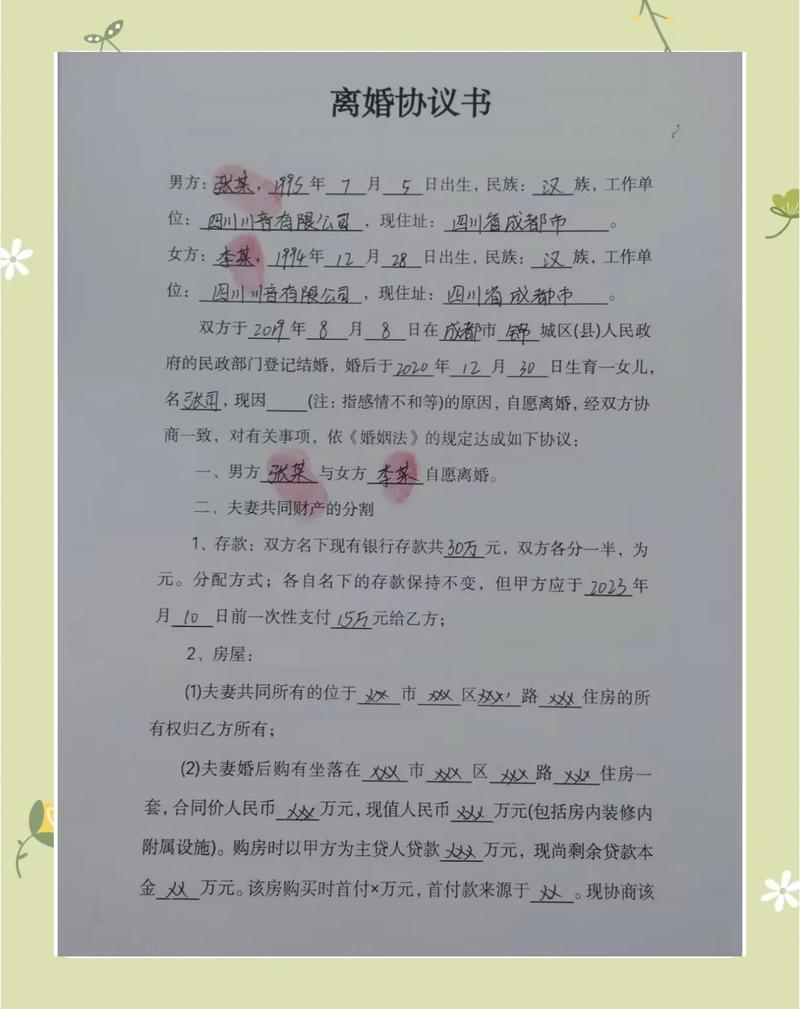 离婚协议书
男方:张某,1995年7月5日出生,民族:汉族,工作单
位:四川川音有限公司,现住址:四川省成都市。
女方:李某,1994年12月28日出生,民族:汉族,工作单
位:四川川音有限公司,现住址:四川省成都市。
双方于2019年8月8日在成都市锦城区(县)人民政
府的民政部门登记结婚,婚后于2020年12月30日生育一女儿,
名张司,现因____(注:指感情不和等)的原因,自愿离婚,经双方协
商一致,对有关事项,依《婚姻法》的规定达成如下协议:
一、男方张某与女方李某自愿离婚。
二、夫妻共同财产的分割
1、存款:双方名下现有银行存款共30万元,双方各分一半,为
元。分配方式;各自名下的存款保持不变,但甲方应于2023年
月10日前一次性支付15万元给乙方;
2、房屋:
(1)夫妻共同所有的位于xx市xxx区xxx路xxx住房的所
有权归乙方所有;
(2)夫妻婚后购有坐落在xxx市xxx区xxx路xxx住房一
套,合同价人民币xxx万元,现值人民币xxx万元(包括房内装修内
附属设施)。购房时以甲方为主贷人贷款xxx万元,现尚剩余贷款本
金xx万元。该房购买时首付×万元,首付款来源于xx。现协商该